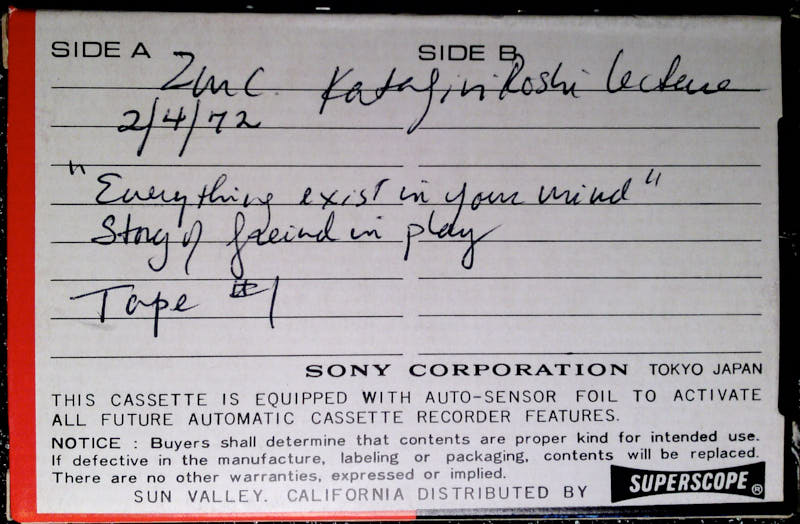 SIDE A SIDE B
ZMC. Katagiri Roshi lecture
2/4/72
"Everything exist in your mind"
Story of freind in play
Tape #1
SONY CORPORATION TOKYO JAPAN
THIS CASSETTE IS EQUIPPED WITH AUTO-SENSOR FOIL TO ACTIVATE
ALL FUTURE AUTOMATIC CASSETTE RECORDER FEATURES.
NOTICE : Buyers shall determine that contents are proper kind for intended use.
If defective in the manufacture, labeling or packaging, contents will be replaced.
There are no other warranties, expressed or implied.
SUN VALLEY. CALIFORNIA DISTRIBUTED BY SUPERSCOPE®